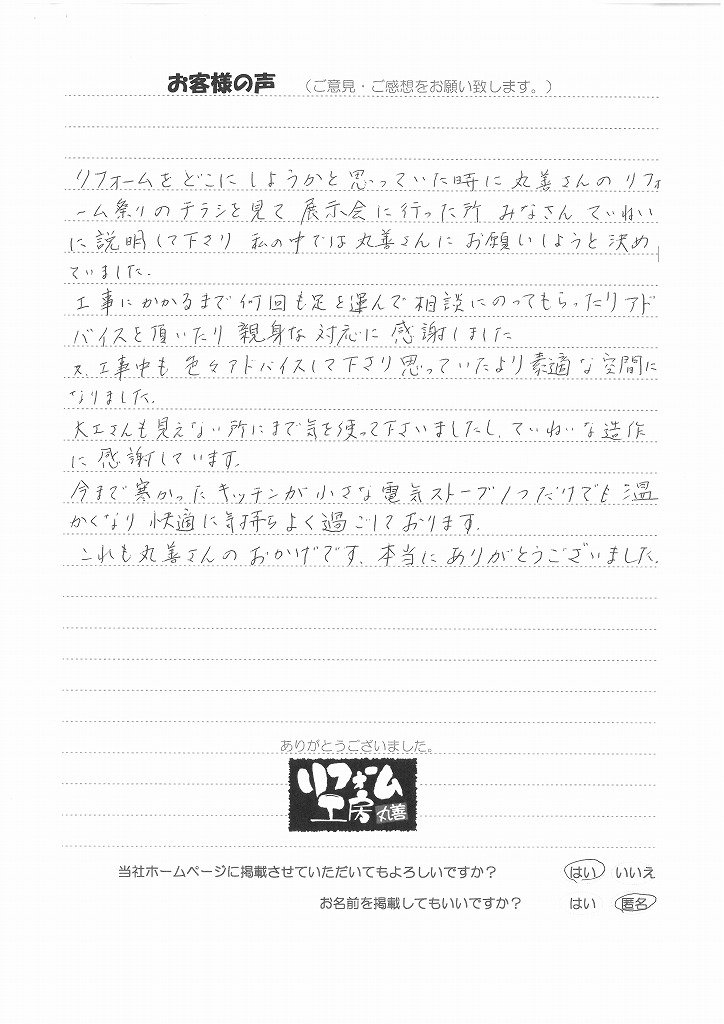 お客様の声 （ご意見・ご感想をお願い致します。）
リフォームをどこにしようかと思っていた時に丸善さんのリフォ
ーム祭りのチラシを見て展示会に行った所 みなさんていねい
に説明して下さり 私の中では丸善さんにお願いしようと決め
ていました.
工事にかかるまで何回も足を運んで相談にのってもらったりアド
バイスを頂いたり 親身な対応に感謝しました
又、工事中も色々アドバイスして下さり思っていたより素適な空間に
なりました.
大工さんも見えない所にまで気を使って下さいましたし、ていねいな造作
に感謝しています.
今まで寒かったキッチンが小さな電気ストーブ1つだけでも温
かくなり快適に気持ちよく過ごしております.
これも丸善さんのおかげです. 本当にありがとうございました.
ありがとうございました。
リフォーム
工房 丸善
当社ホームページに掲載させていただいてもよろしいですか？ はい いいえ
お名前を掲載してもいいですか？ はい 匿名